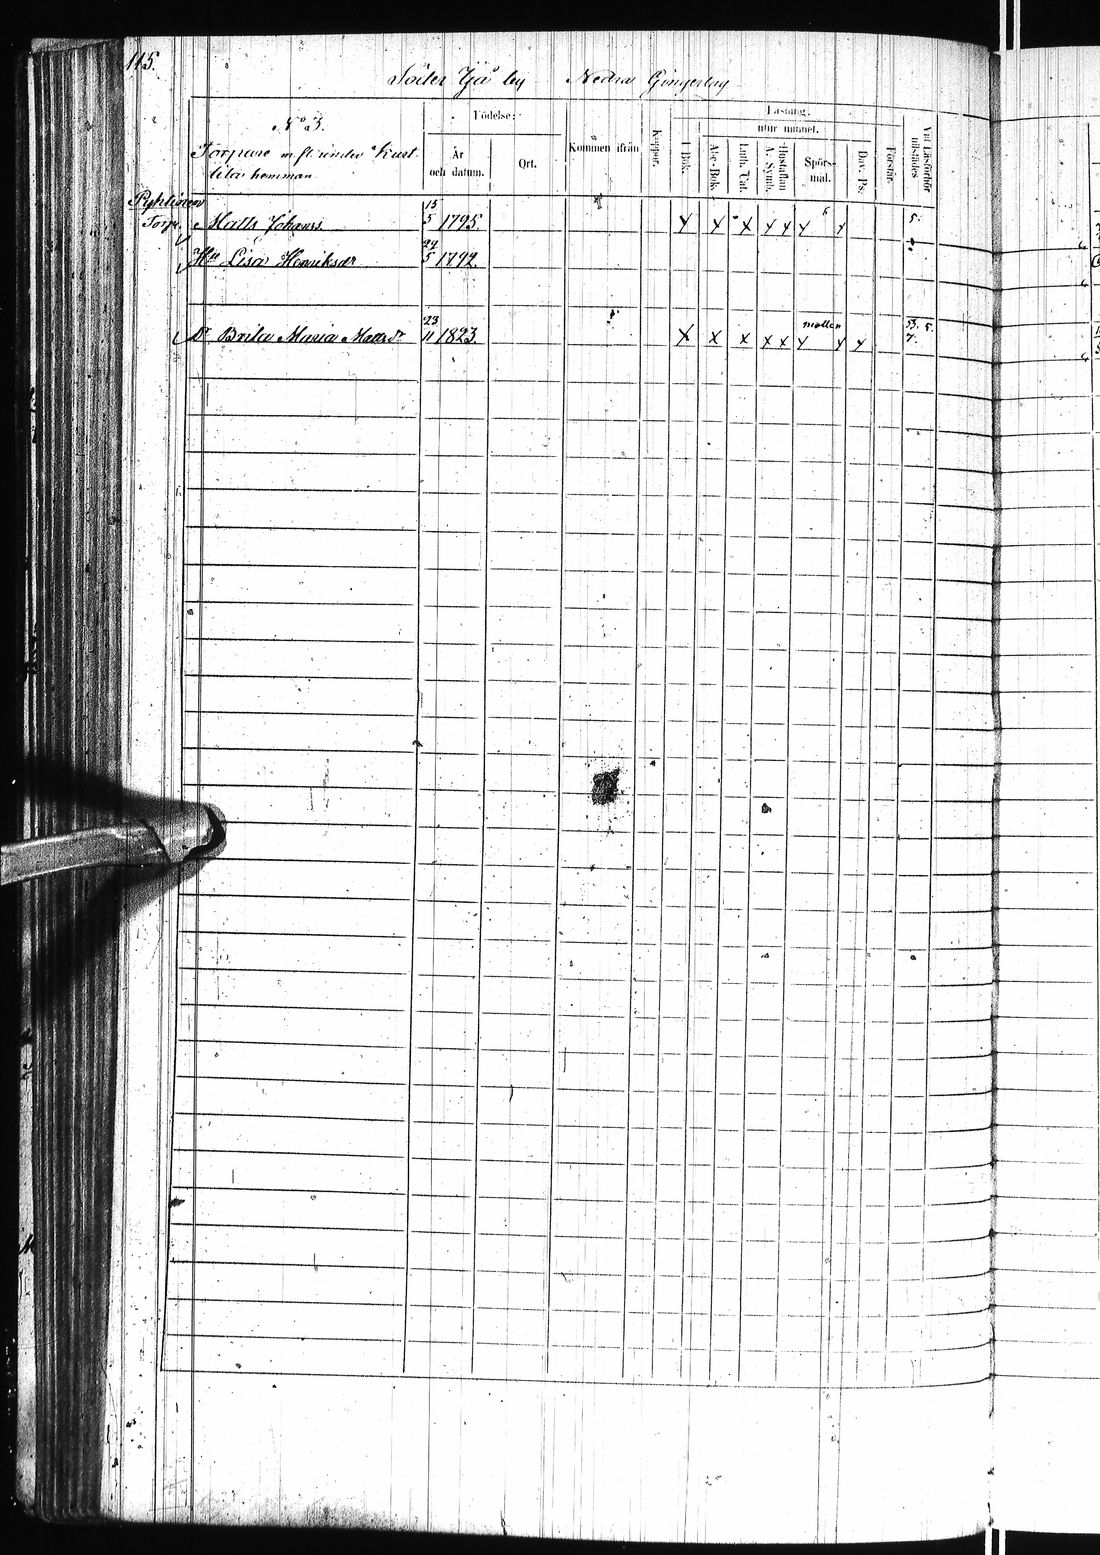 115.
Söder Yjå by Nedra
N:o 3.
Torpare m fl under Kust-
hemman
Födelse:
År
och datum.
Ort.
Kommen ifrån
Koppor.
Läsning:
utur minnet.
I Bok.
Abc-Bok.
Luth. Cat.
A. Symb.
Hustaflan
Spörs-
mål.
Dav. Ps.
Förstår.
Vid Läsförhör
tillstädes
Torp. Matts Johanss. 15/5 1795. x x x x x x x 5.
Hu Lisa Henriksdr 24/5 1792.
Dr Brita Maria Mattsdr 23/11 1823. x x x x x x x x 53. 5.
7.